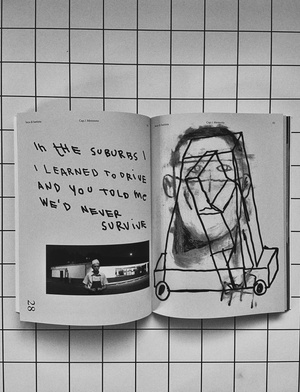 IN THE SUBURBS I
I LEARNED TO DRIVE
AND YOU TOLD ME
WE'D NEVER
SURVIVE
28